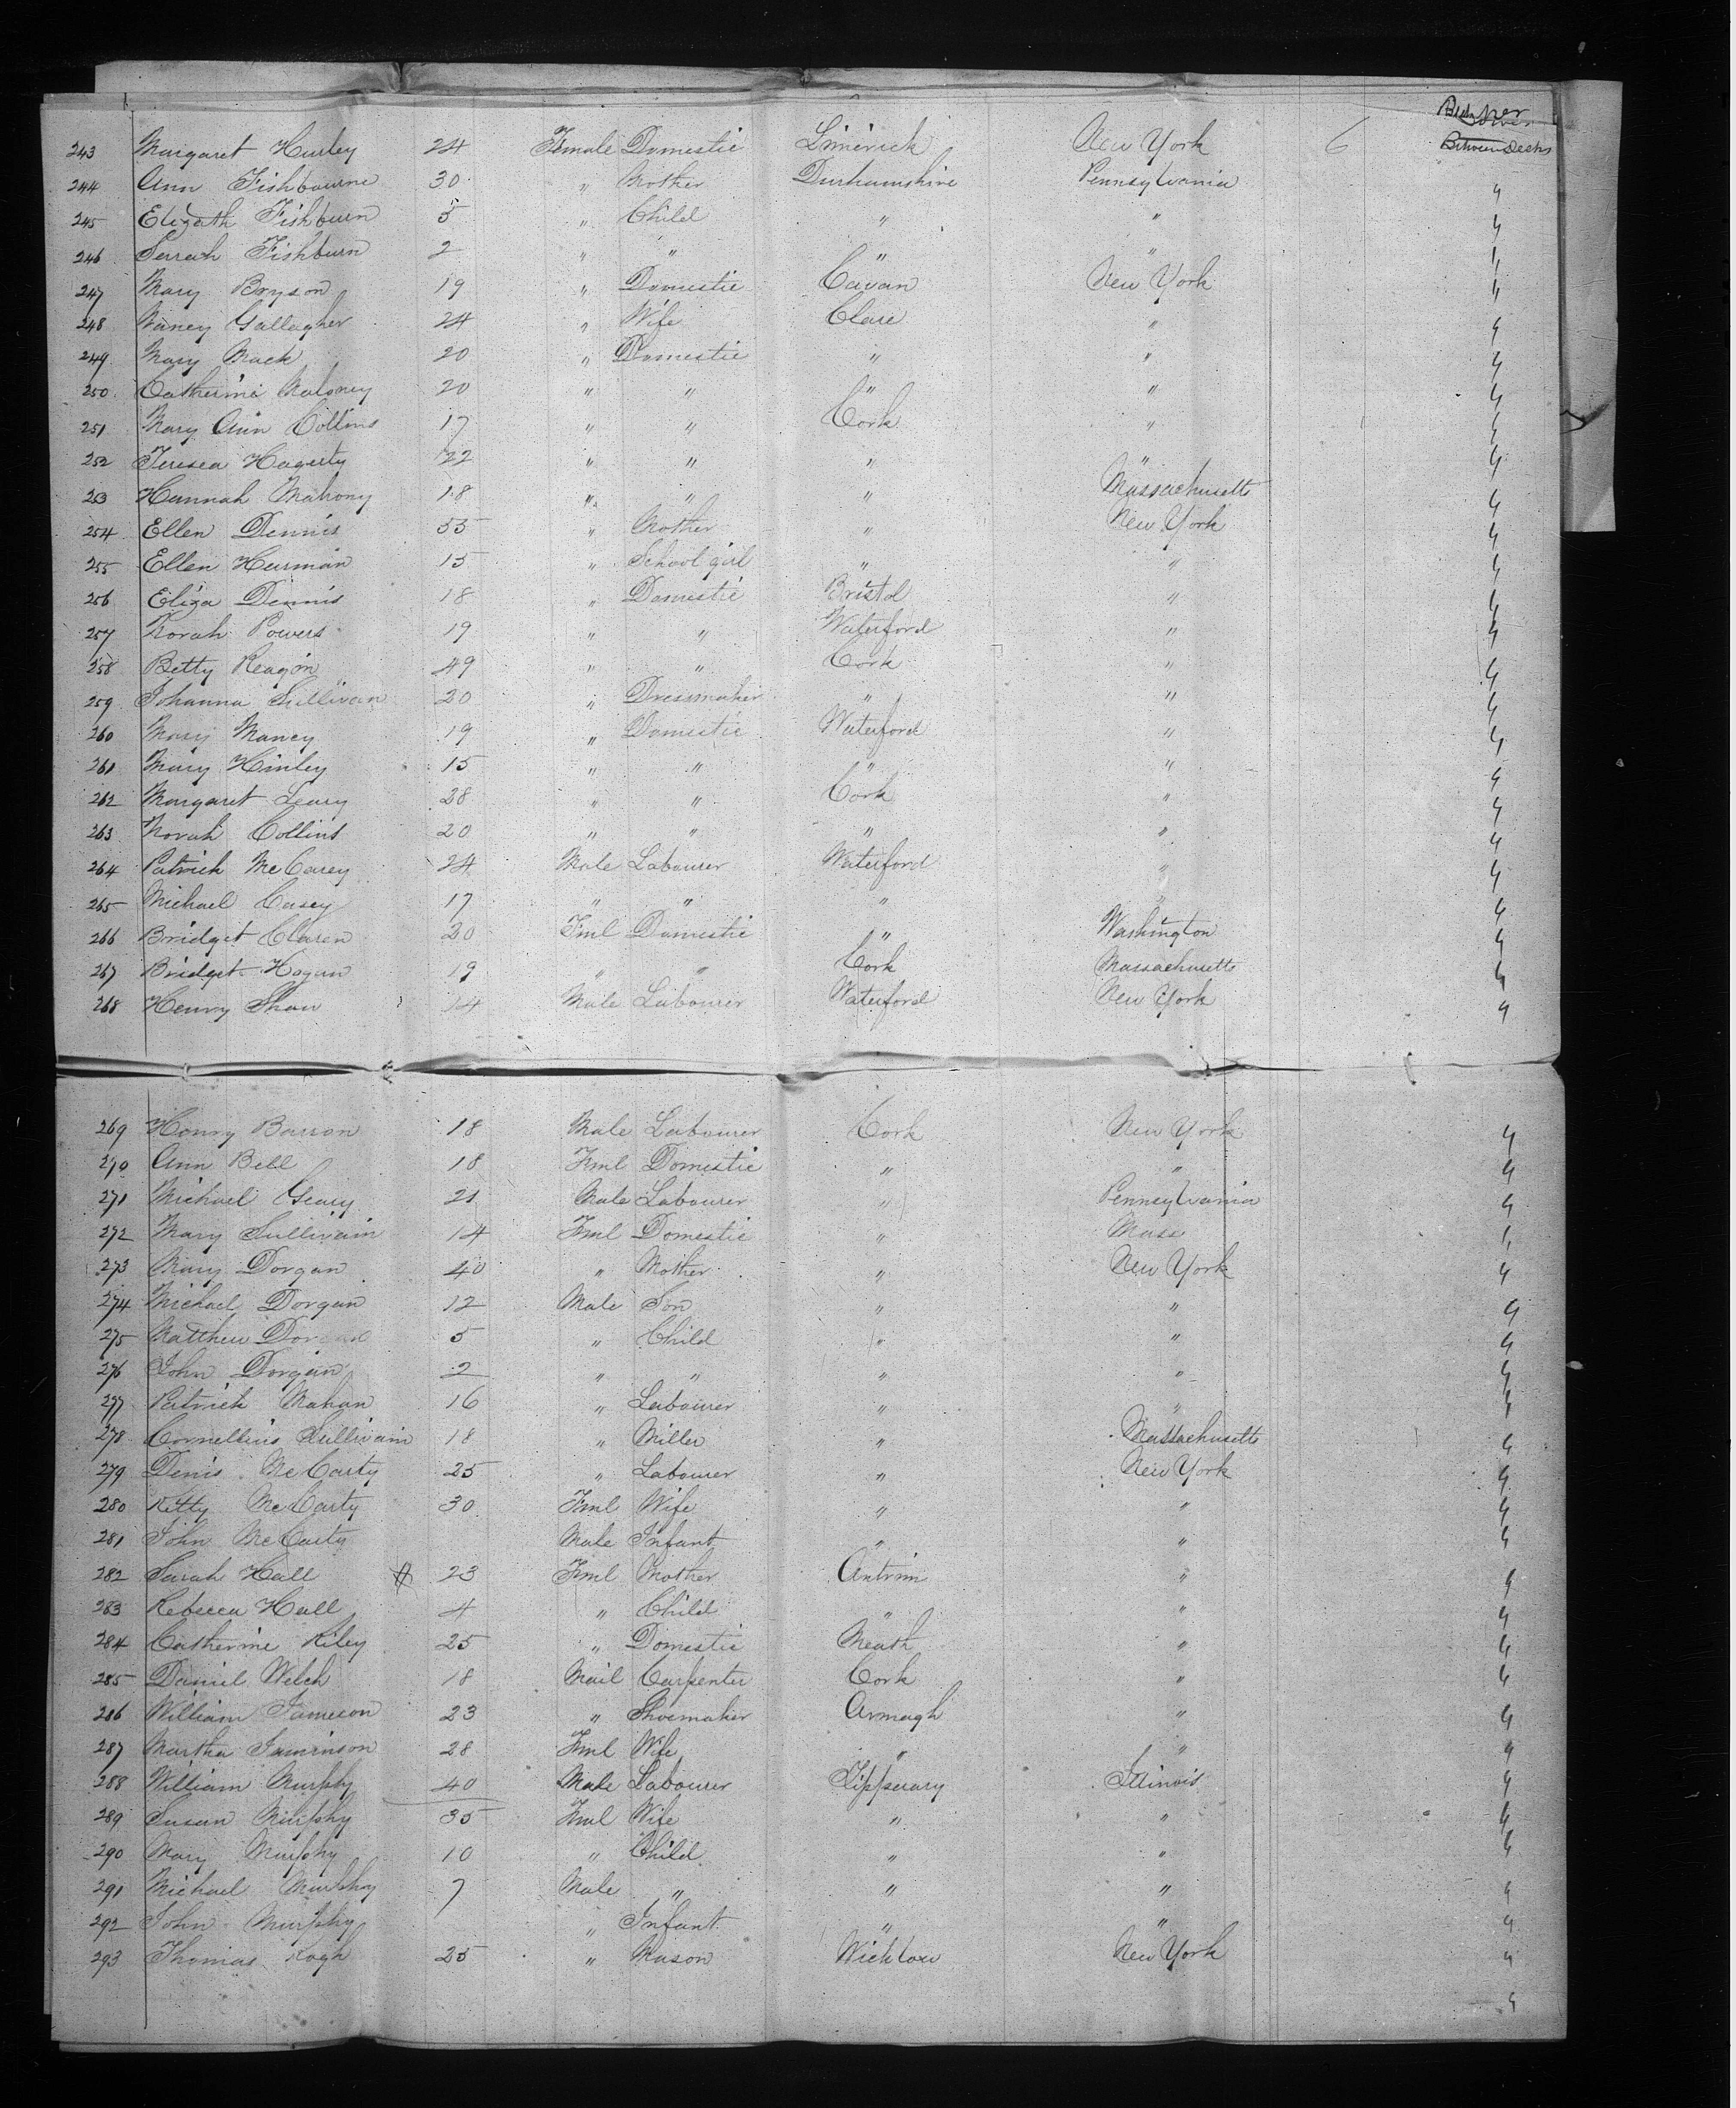 Between Decks
243 Margaret Hurley 24 Female Domestic Limerick New York 6
244 Ann Fishbourne 30 " Mother Durhamshire Pennsylvania "
245 Elizath Fishburn 5 " Child " " "
246 Serrah Fishburn 2 " " " " "
247 Mary Bryson 19 " Domestic Cavan New York "
248 Nancy Gallagher 24 " Wife Clare " "
249 Mary Mack 20 " Domestic " " "
250 Catherine Maloney 20 " " " " "
251 Mary Ann Collins 17 " " Cork " "
252 Teresea Hagerty 22 " " " " "
253 Hannah Mahony 18 " " " Massachusetts "
254 Ellen Dennis 55 " Mother " New York "
255 Ellen Hurman 15 " School girl " " "
256 Eliza Dennis 18 " Domestic Bristol " "
257 Norah Powers 19 " " Waterford " "
258 Betty Reagon 49 " " Cork " "
259 Johanna Sullivan 20 " Dressmaker " " "
260 Mary Maney 19 " Domestic Waterford " "
261 Mary Hinley 15 " " " " "
262 Margaret Leary 28 " " Cork " "
263 Norah Collins 20 " " " " "
264 Patrick McCarey 24 Male Labourer Waterford " "
265 Michael Casey 17 " " " " "
266 Bridget Claren 20 Fml Domestic " Washington "
267 Bridget Hogan 19 " " Cork Massachusetts "
268 Henry Shaw 14 Male Labourer Waterford New York "
269 Henry Barron 18 Male Labourer Cork New York "
270 Ann Bell 18 Fml Domestic " " "
271 Michael Geary 21 Male Labourer " Pennsylvania "
272 Mary Sullivain 14 Fml Domestic " Mass "
273 Mary Dorgan 40 " Mother " New York "
274 Michael Dorgan 12 Male Son " " "
275 Matthew Dorgan 5 " Child " " "
276 John Dorgan 2 " " " " "
277 Patrick Mahan 16 " Labourer " " "
278 Cornellius Sullivain 18 " Miller " Massachusetts "
279 Denis McCarty 25 " Labourer " New York "
280 Kitty McCarty 30 Fml Wife " " "
281 John McCarty Male Infant " " "
282 Sarah Hall 23 Fml Mother Antrim " "
283 Rebecca Hall 4 " Child " " "
284 Catherine Riley 25 " Domestic Meath " "
285 Daniel Welch 18 Mail Carpenter Cork " "
286 William Jameson 23 " Shoemaker Armagh " "
287 Martha Jaminson 28 Fml Wife " " "
288 William Murphy 40 Male Labourer Tipperary Illinois "
289 Susan Murphy 35 Fml Wife " " "
290 Mary Murphy 10 " Child " " "
291 Michael Murphy 7 Male " " " "
292 John Murphy " Infant " " "
293 Thomas Kogh 25 " Mason Wicklow New York "
"